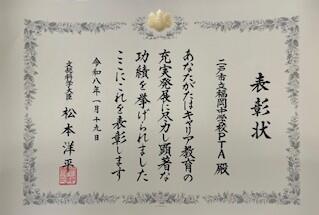 表彰状
二戸市立福岡中学校PTA殿
あなたがたはキャリア教育の
充実発展に尽力し顕著な
功績を挙げられました
ここにこれを表彰します
令和八年一月十九日
文部科学大臣 松本洋平